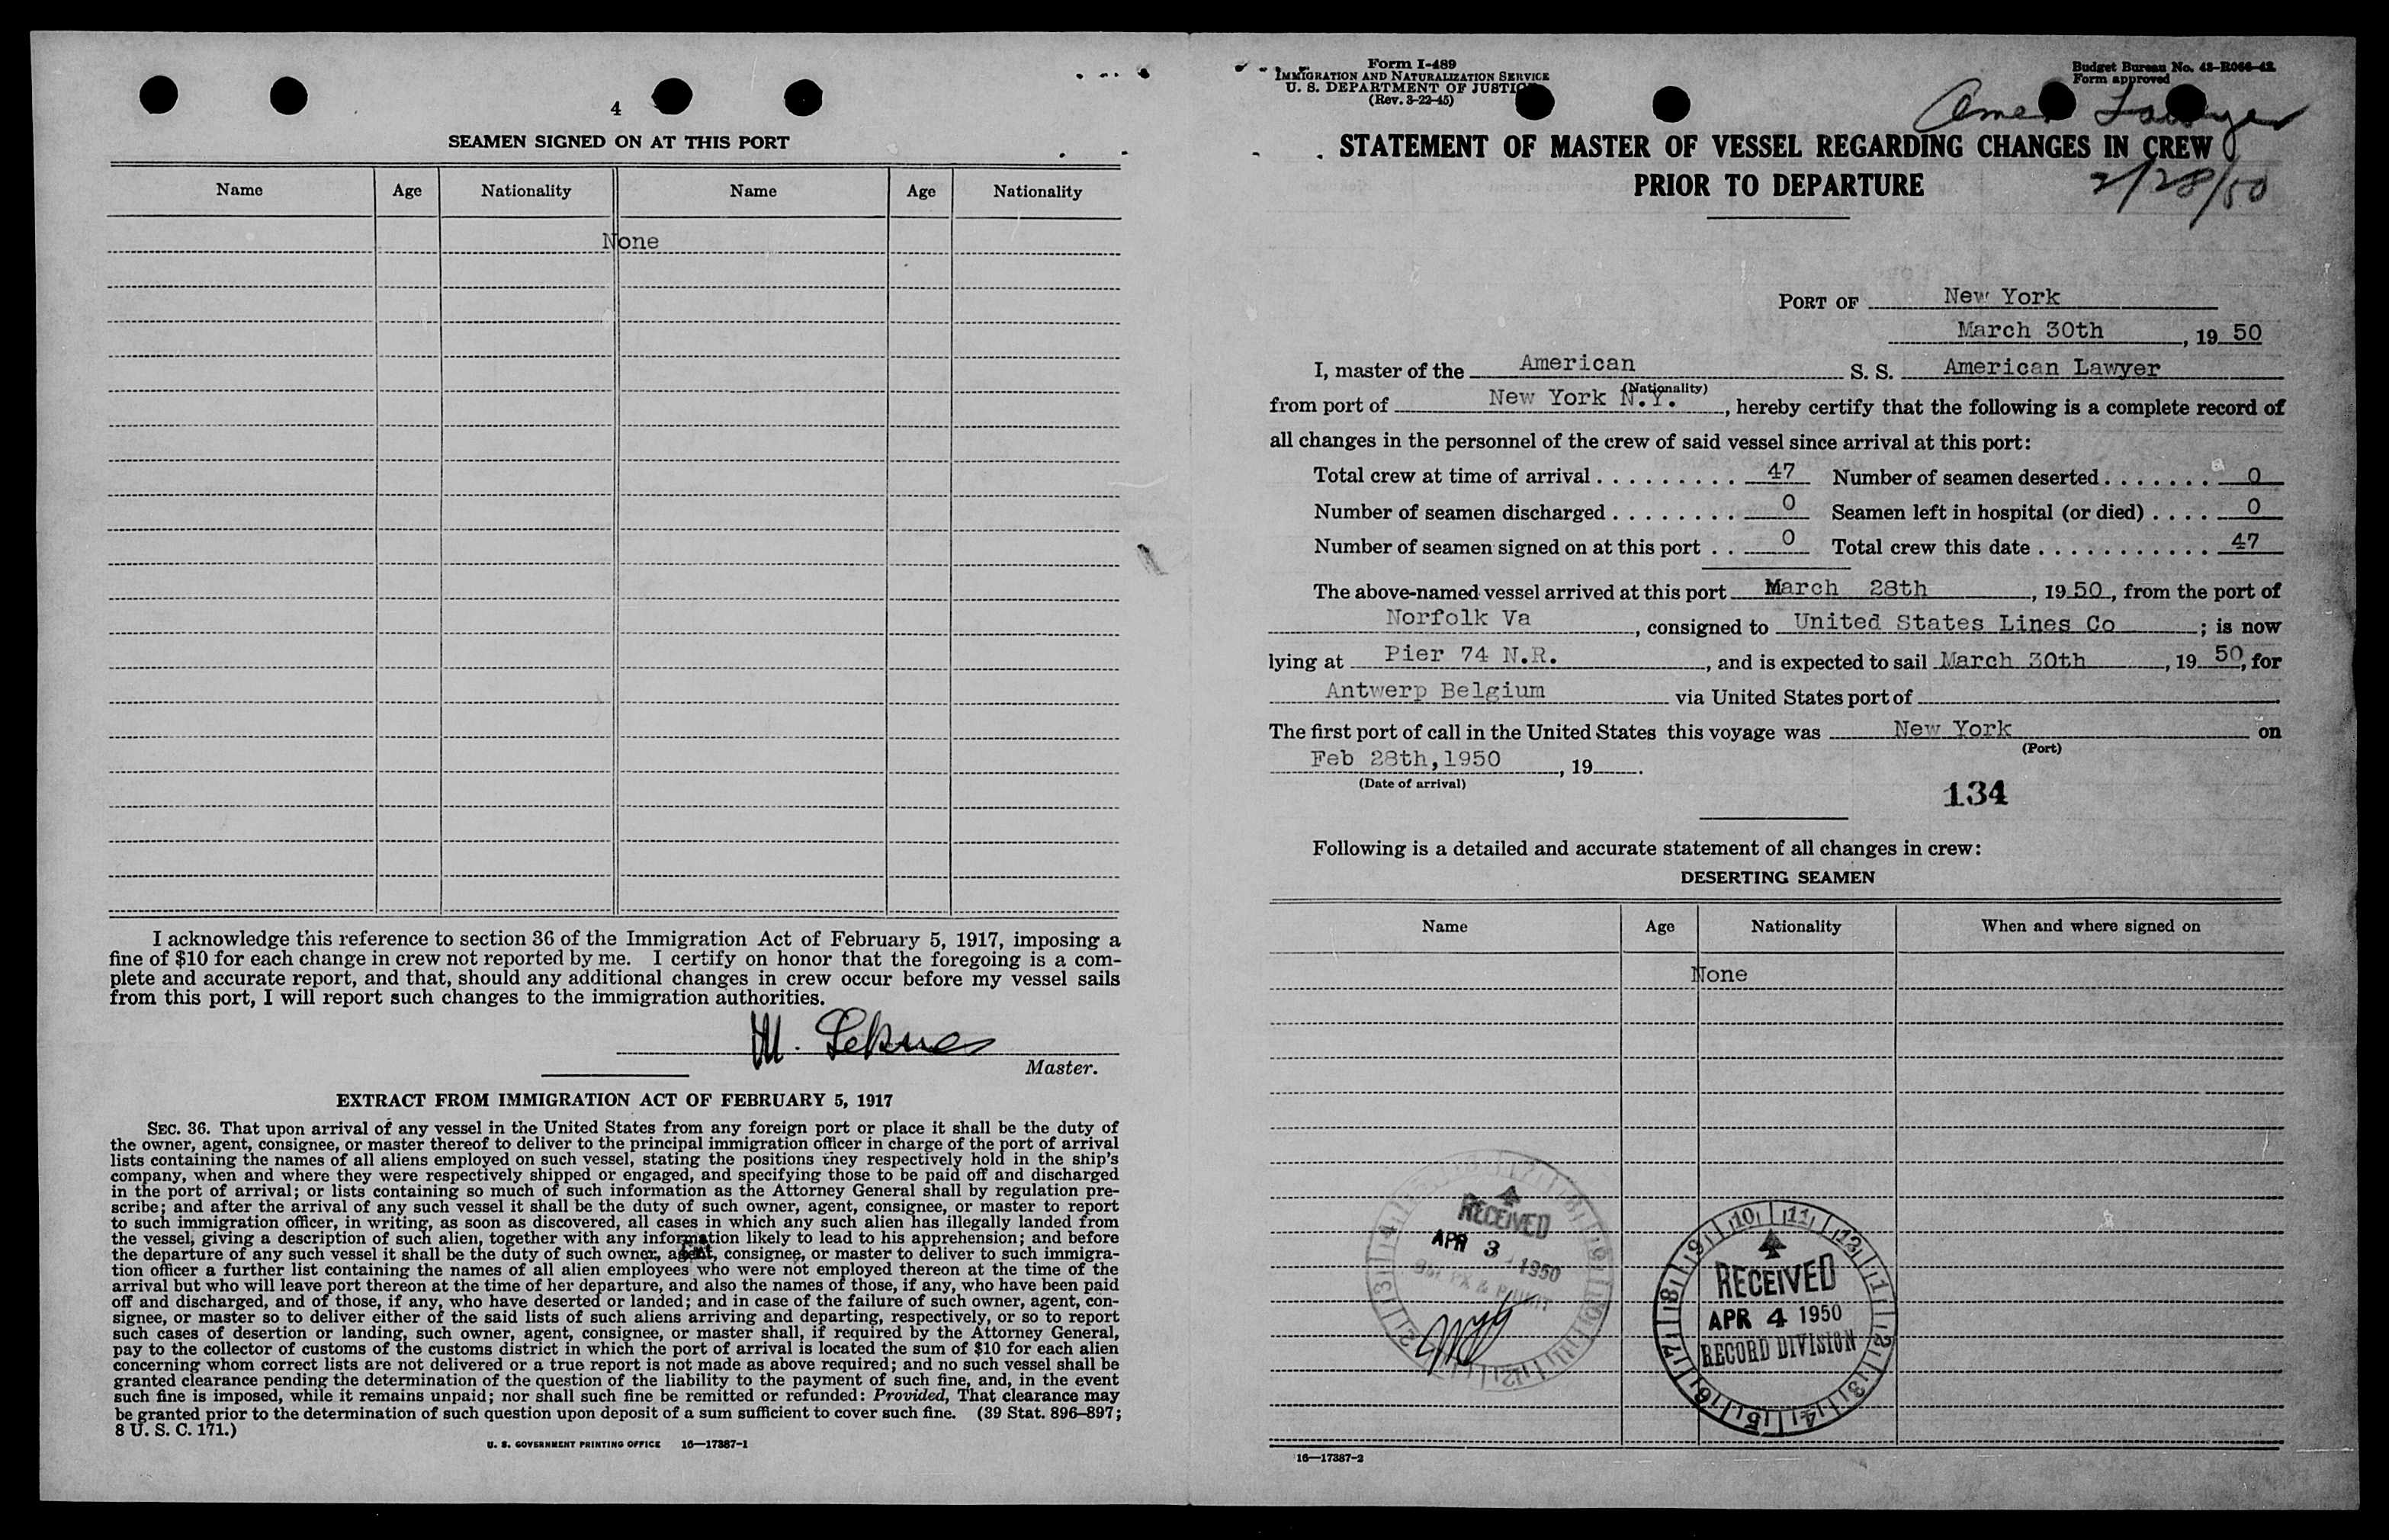 4
SEAMEN SIGNED ON AT THIS PORT
Name Age Nationality Name Age Nationality
None
I acknowledge this reference to section 36 of the Immigration Act of February 5, 1917, imposing a
fine of $10 for each change in crew not reported by me. I certify on honor that the foregoing is a com-
plete and accurate report, and that, should any additional changes in crew occur before my vessel sails
from this port, I will report such changes to the immigration authorities.
M.
Master.
EXTRACT FROM IMMIGRATION ACT OF FEBRUARY 5, 1917
SEC. 36. That upon arrival of any vessel in the United States from any foreign port or place it shall be the duty of
the owner, agent, consignee, or master thereof to deliver to the principal immigration officer in charge of the port of arrival
lists containing the names of all aliens employed on such vessel, stating the positions they respectively hold in the ship's
company, when and where they were respectively shipped or engaged, and specifying those to be paid off and discharged
in the port of arrival; or lists containing so much of such information as the Attorney General shall by regulation pre-
scribe; and after the arrival of any such vessel it shall be the duty of such owner, agent, consignee, or master to report
to such immigration officer, in writing, as soon as discovered, all cases in which any such alien has illegally landed from
the vessel, giving a description of such alien, together with any information likely to lead to his apprehension; and before
the departure of any such vessel it shall be the duty of such owner, agent, consignee, or master to deliver to such immigra-
tion officer a further list containing the names of all alien employees who were not employed thereon at the time of the
arrival but who will leave port thereon at the time of her departure, and also the names of those, if any, who have been paid
off and discharged, and of those, if any, who have deserted or landed; and in case of the failure of such owner, agent, con-
signee, or master so to deliver either of the said lists of such aliens arriving and departing, respectively, or so to report
such cases of desertion or landing, such owner, agent, consignee, or master shall, if required by the Attorney General,
pay to the collector of customs of the customs district in which the port of arrival is located the sum of $10 for each alien
concerning whom correct lists are not delivered or a true report is not made as above required; and no such vessel shall be
granted clearance pending the determination of the question of the liability to the payment of such fine, and, in the event
such fine is imposed, while it remains unpaid; nor shall such fine be remitted or refunded: Provided, That clearance may
be granted prior to the determination of such question upon deposit of a sum sufficient to cover such fine. (39 Stat. 896–897;
8 U. S. C. 171.)
U. S. GOVERNMENT PRINTING OFFICE 16—17387-1
Form I-489
IMMIGRATION AND NATURALIZATION SERVICE
U. S. DEPARTMENT OF JUSTICE
(Rev. 3-22-45)
Budget Bureau No. 43-R066-42
Form approved
Amer Lawyer
2/28/50
STATEMENT OF MASTER OF VESSEL REGARDING CHANGES IN CREW
PRIOR TO DEPARTURE
PORT OF New York
March 30th, 19 50
I, master of the American S. S. American Lawyer
(Nationality)
from port of New York N.Y., hereby certify that the following is a complete record of
all changes in the personnel of the crew of said vessel since arrival at this port:
Total crew at time of arrival 47 Number of seamen deserted 0
Number of seamen discharged 0 Seamen left in hospital (or died) 0
Number of seamen signed on at this port 0 Total crew this date 47
The above-named vessel arrived at this port March 28th, 19 50, from the port of
Norfolk Va, consigned to United States Lines Co; is now
lying at Pier 74 N.R., and is expected to sail March 30th, 19 50, for
Antwerp Belgium via United States port of
The first port of call in the United States this voyage was New York on
(Port)
Feb 28th,1950, 19
(Date of arrival)
134
Following is a detailed and accurate statement of all changes in crew:
DESERTING SEAMEN
Name Age Nationality When and where signed on
None
RECEIVED
APR 3 1950
RECEIVED
APR 4 1950
RECORD DIVISION
16—17387-2